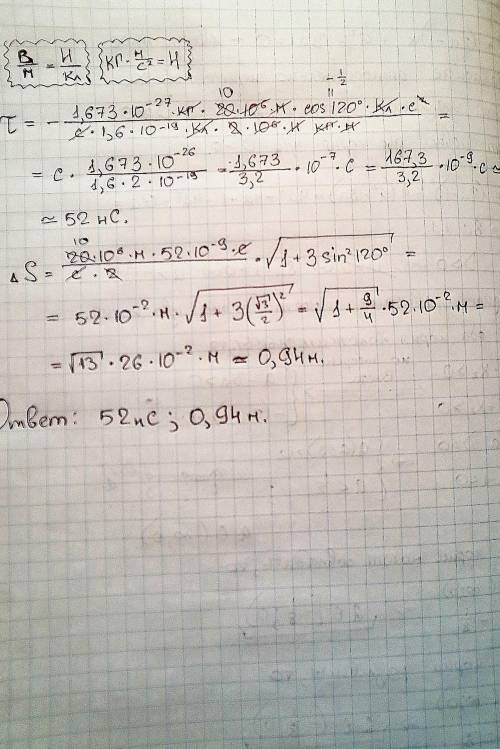 В/м = Н/Кл   кг · м/с² = Н
10   -1/2
τ = - (1,673 · 10⁻²⁷ · кг · 20 · 10⁶ · м · cos 120° · Кл · с²) / (с · 1,6 · 10⁻¹⁹ · Кл · 2 · 10⁶ · Н · кг · м) =
= с · (1,673 · 10⁻²⁶) / (1,6 · 2 · 10⁻¹⁹) = 1,673/3,2 · 10⁻⁷ · с = 167,3/3,2 · 10⁻⁹ · с ≃
≃ 52 нс.
10
ΔS = (20 · 10⁶ · м · 52 · 10⁻⁹ · с) / (с · 2) · √(1 + 3 sin² 120°) =
= 52 · 10⁻² · м · √(1 + 3(√3/2)²) = √(1 + 9/4) · 52 · 10⁻² · м =
= √13 · 26 · 10⁻² · м ≃ 0,94 м.
Ответ: 52 нс; 0,94 м.